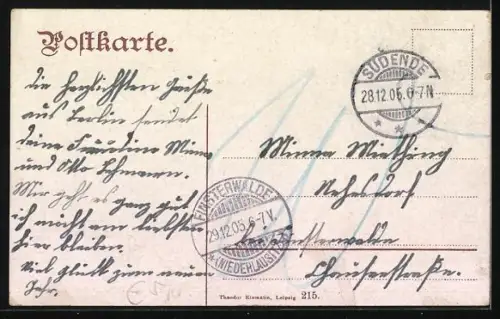 Postkarte.
die herzlichsten Grüße
aus Berlin sendet
deine Freundin Minna
und Otto Lehmann.
Mir geht es ganz gut
ich möchte am liebsten
hier bleiben.
Viel Glück zum neuen
Jahr.
SÜDENDE
28.12.05.6-7N
Minna
Nehesdorf
Finsterwalde
FINSTERWALDE
29.12.05.6-7V.
(NIEDERLAUSITZ)
Theodor Eismann, Leipzig 215.